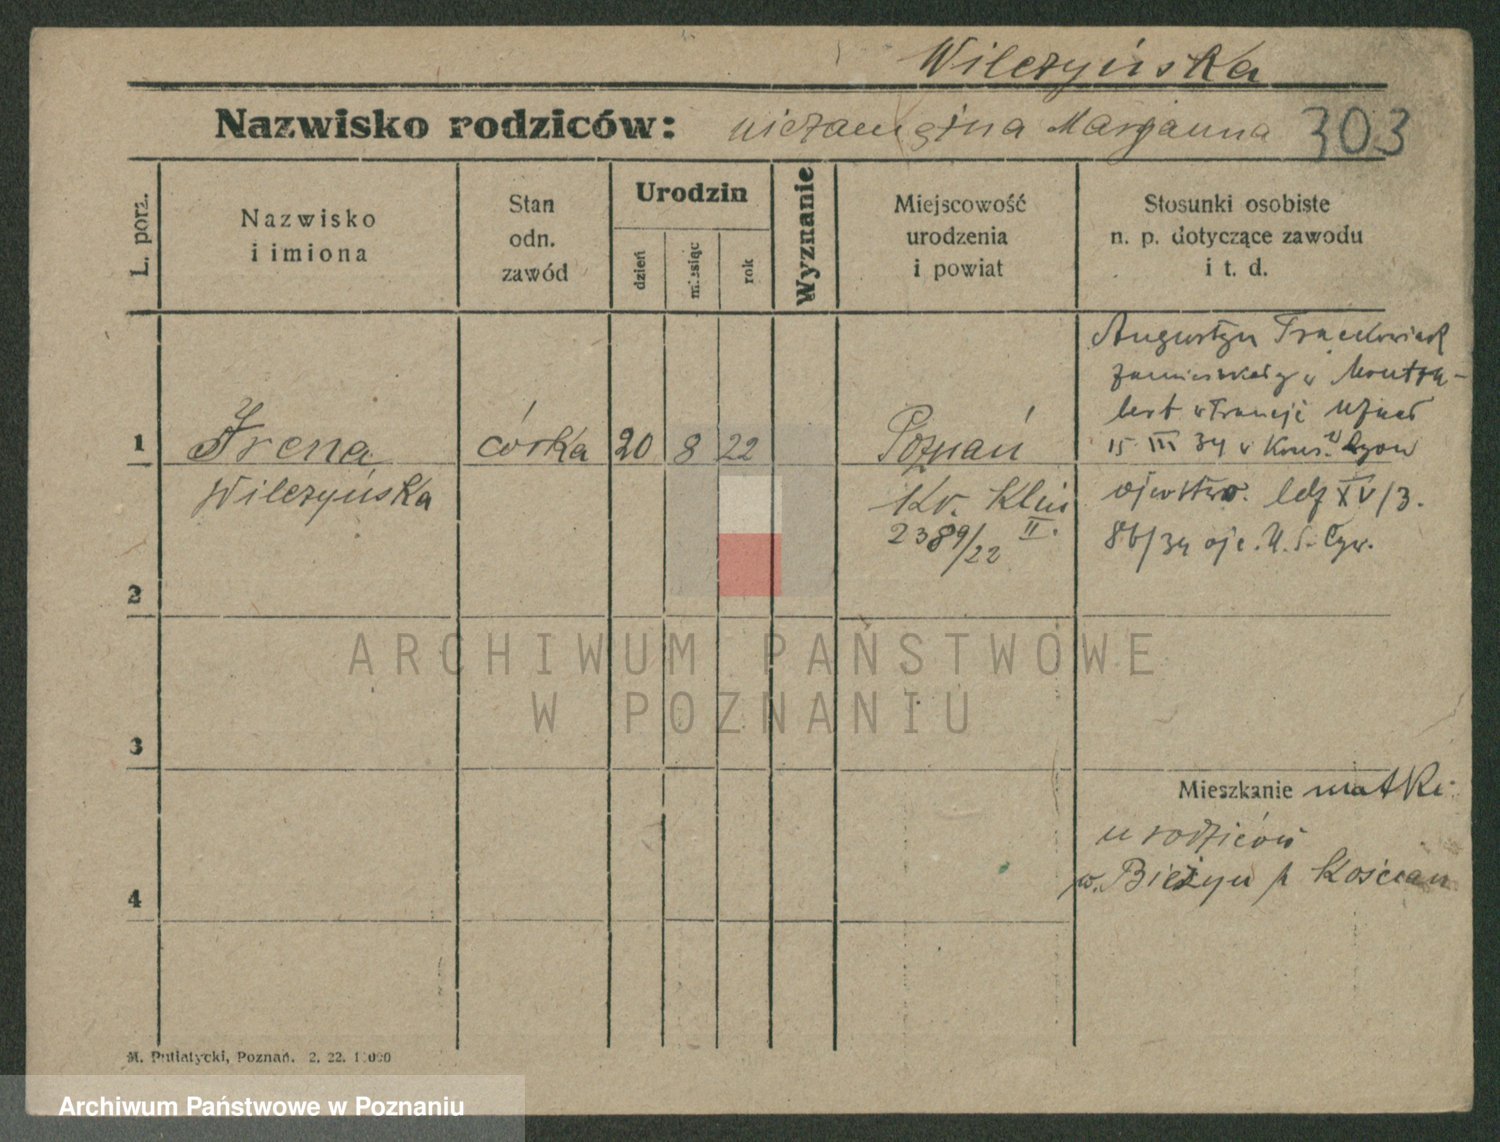 Wilczyńska
Nazwisko rodziców: niezamężna Marjanna 303
L. porz.
Nazwisko
i imiona
Stan
odn.
zawód
Urodzin
dzień
miesiąc
rok
Wyznanie
Miejscowość
urodzenia
i powiat
Stosunki osobiste
n. p. dotyczące zawodu
i t. d.
1
Irena
Wilczyńska
córka
20
8
22
Poznań
Kr. Klin
II.
2389/22
Augustyn
zamieszkały w
w Francji uznał
15 III 34 w Kons. Lyon
ojcostwo. ldz XV/3.
86/34 U.S. Cyw.
2
3
4
Mieszkanie matki
u rodziców
w. Bieżyn p Kościan
M. Putiatycki, Poznań. 2. 22.
ARCHIWUM PAŃSTWOWE
W POZNANIU
Archiwum Państwowe w Poznaniu